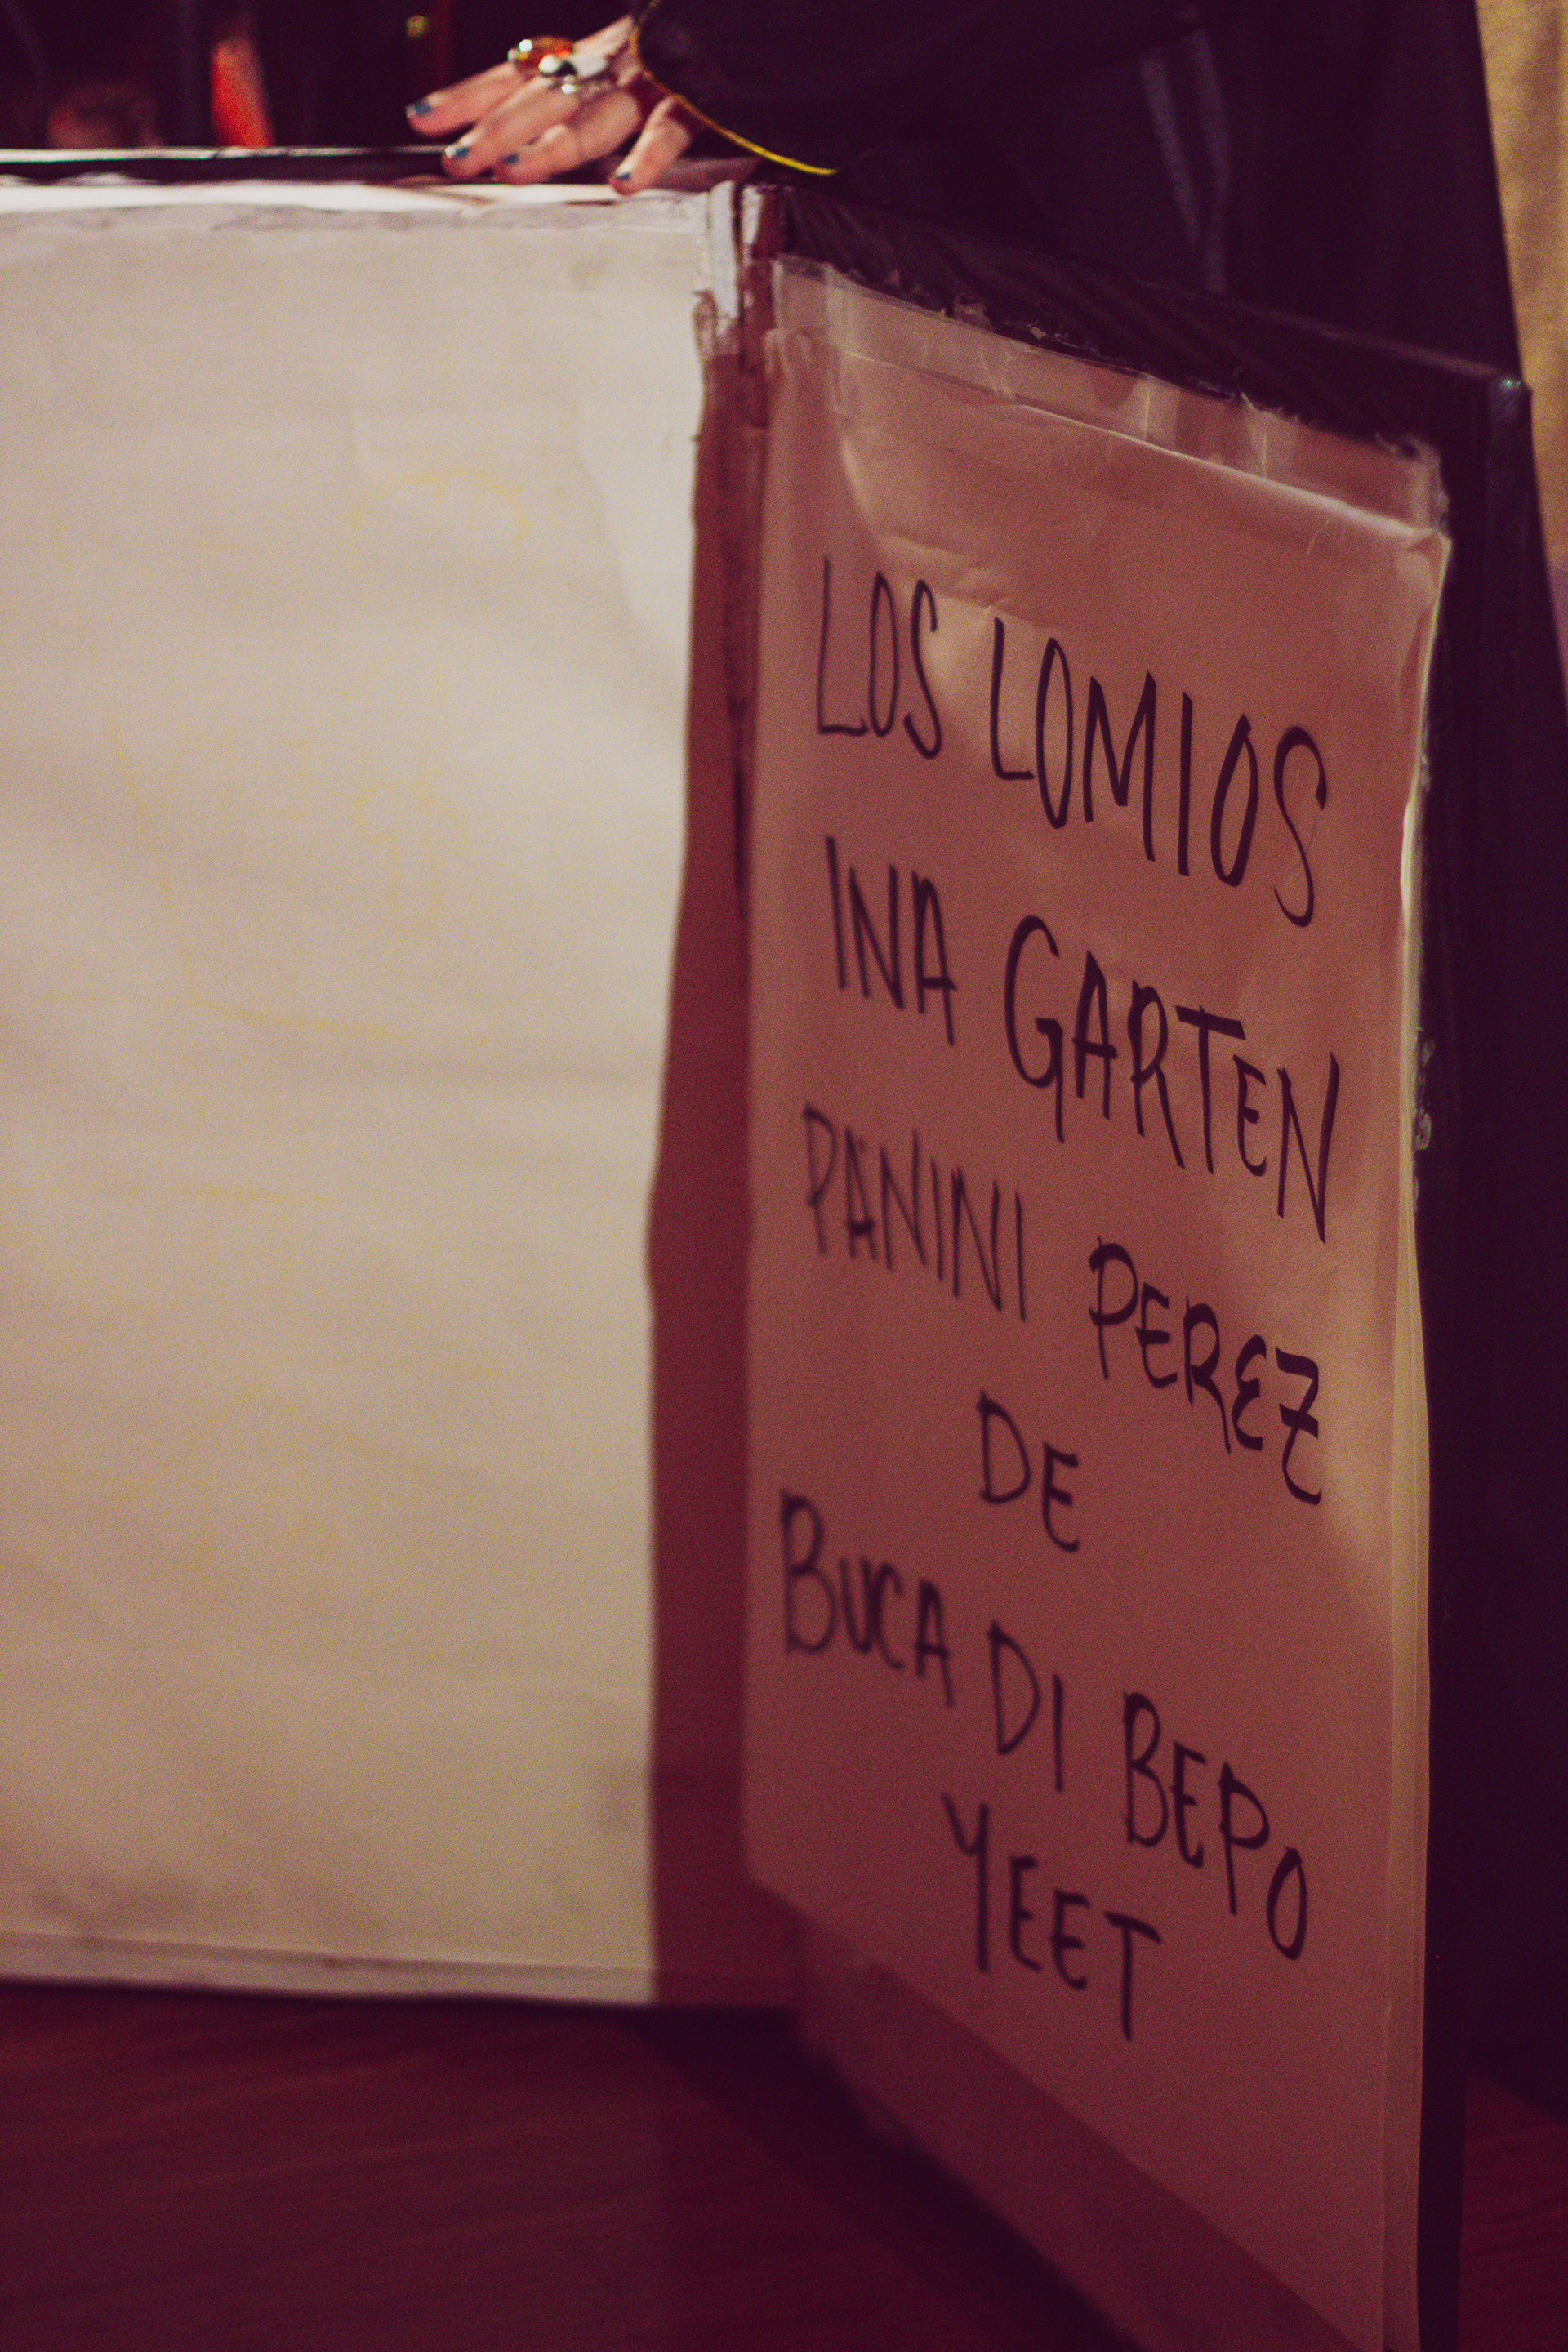 LOS LOMIOS
INA GARTEN
PANINI PEREZ
DE
BUCA DI BEPO
YEET